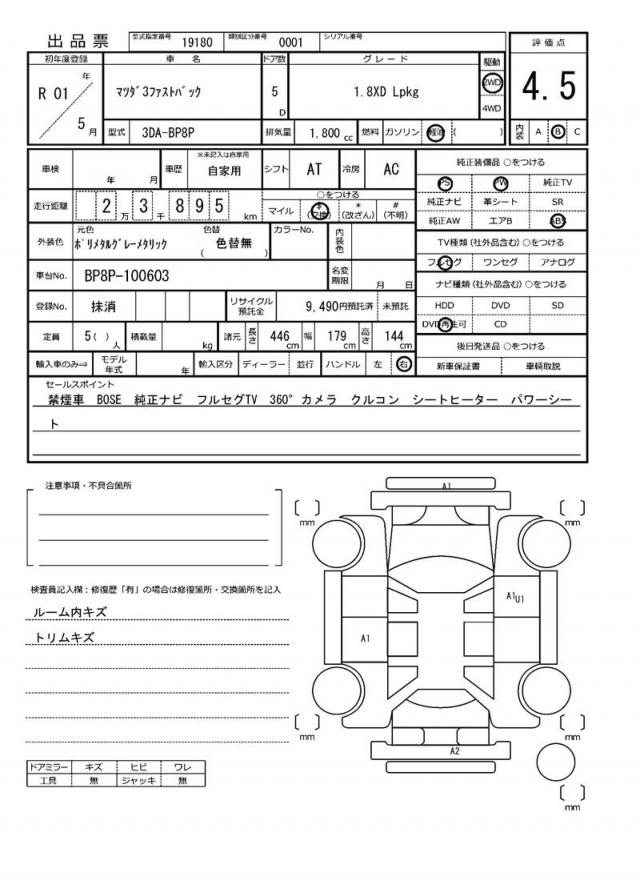 出品票 型式指定番号 19180 類別区分番号 0001 シリアル番号
評価点
4.5
内装 A B C
初年度登録 車名 ドア数 グレード 駆動
R 01 年 5 月 マツダ3ファストバック 5 D 1.8XD Lpkg 2WD 4WD
型式 3DA-BP8P 排気量 1,800 cc 燃料 ガソリン 軽油 ( )
車検 年 月 車歴 ※未記入は自家用 自家用 シフト AT 冷房 AC
走行距離 2 万 3 千 8 9 5 km ○をつける
マイル $ (交換) * (改ざん) # (不明)
外装色 元色 ポリメタルグレーメタリック 色替 ( 色替無 ) カラーNo. 内装色
車台No. BP8P-100603 名変期限 月 日
登録No. 抹消 リサイクル預託金 9,490円預託済 未預託
定員 5( ) 人 積載量 kg 諸元 長さ 446 cm 幅 179 cm 高さ 144 cm
輸入車のみ⇒ モデル年式 年 輸入区分 ディーラー 並行 ハンドル 左 右
純正装備品 ○をつける
PS PW 純正TV
純正ナビ 革シート SR
純正AW エアB ABS
TV種類(社外品含む)○をつける
フルセグ ワンセグ アナログ
ナビ種類(社外品含む)○をつける
HDD DVD SD
DVD再生可 CD
後日発送品 ○をつける
新車保証書 車輌取説
セールスポイント
禁煙車 BOSE 純正ナビ フルセグTV 360°カメラ クルコン シートヒーター パワーシー
ト
注意事項・不具合箇所
検査員記入欄：修復歴「有」の場合は修復箇所・交換箇所を記入
ルーム内キズ
トリムキズ
ドアミラー キズ ヒビ ワレ
工具 無 ジャッキ 無
A1
[ ] mm
[ ] mm
A1 U1
A1
[ ] mm
[ ] mm
A2
[ ] mm